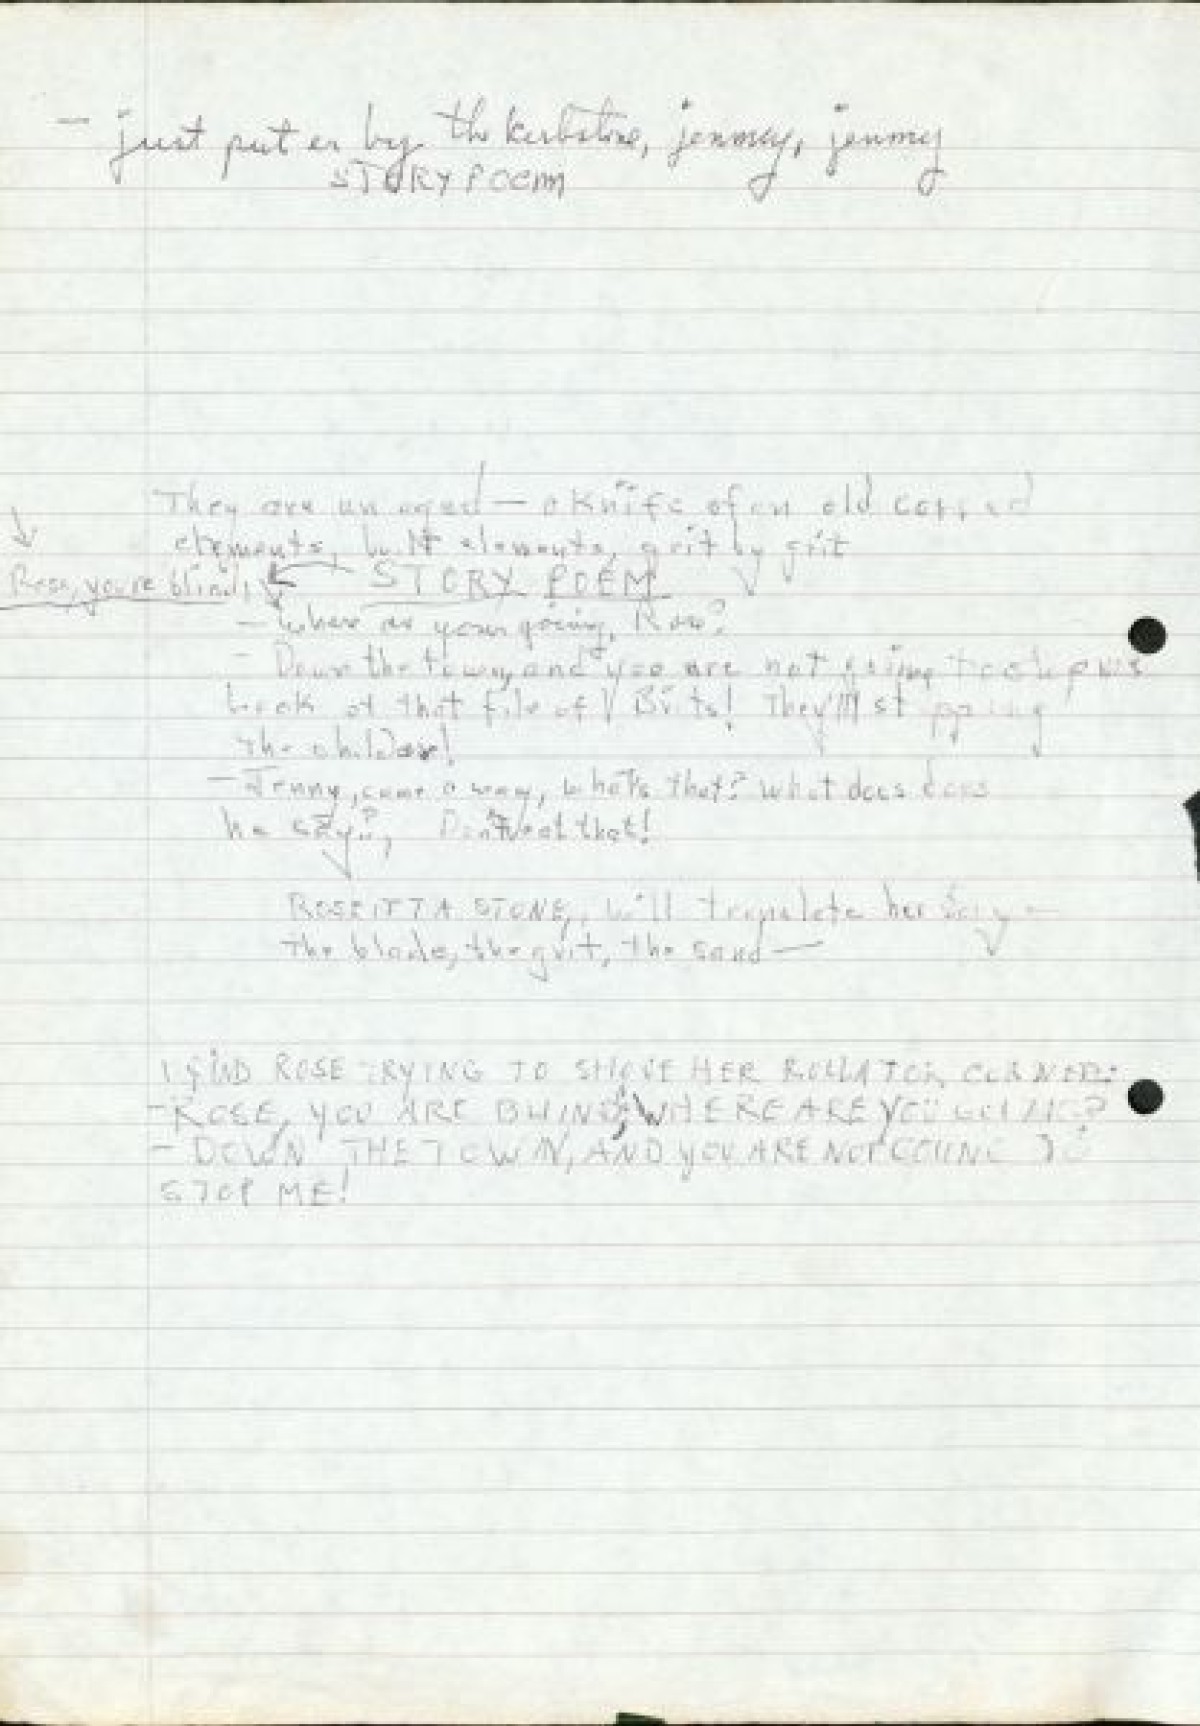 – just put er by the kerbstone, jenmey, jenmey
STORY POEM
They are un aged — a knife of an old
elements, built elements, grit by grit
Rose, you're blind,
STORY POEM
– Where are your going, Rose?
– Down the town, and you are not going to stop
look at that file of Brits! They'll st pping
the children!
– Jenny, come away, what's that? what does does
he say?, Don't eat that!
ROSEITTA STONE, will translate her say –
the blade, the grit, the sand —
I FIND ROSE TRYING TO SHOVE HER ROLLATOR CORNER:
– ROSE, YOU ARE BLIND, WHERE ARE YOU GOING?
– DOWN THE TOWN, AND YOU ARE NOT GOING TO
STOP ME!